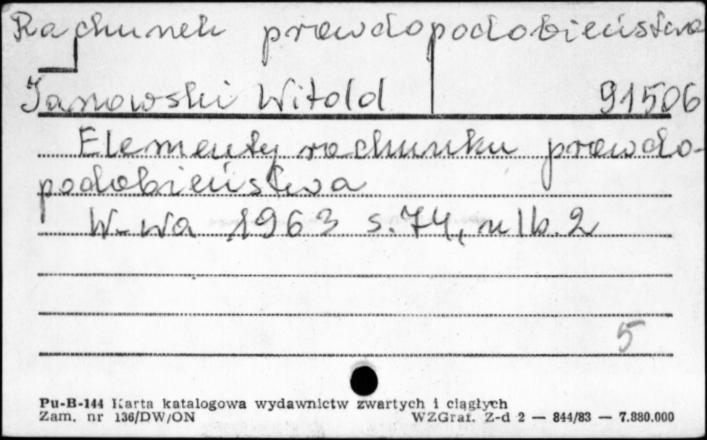 Rachunek prawdopodobieństwa
Janowski Witold 91506
Elementy rachunku prawdo-
podobieństwa
W-wa 1963 s. 74, nlb. 2
5
Pu-B-144 Karta katalogowa wydawnictw zwartych i ciągłych
Zam. nr 136/DW/ON WZGraf. Z-d 2 — 844/83 — 7.880.000